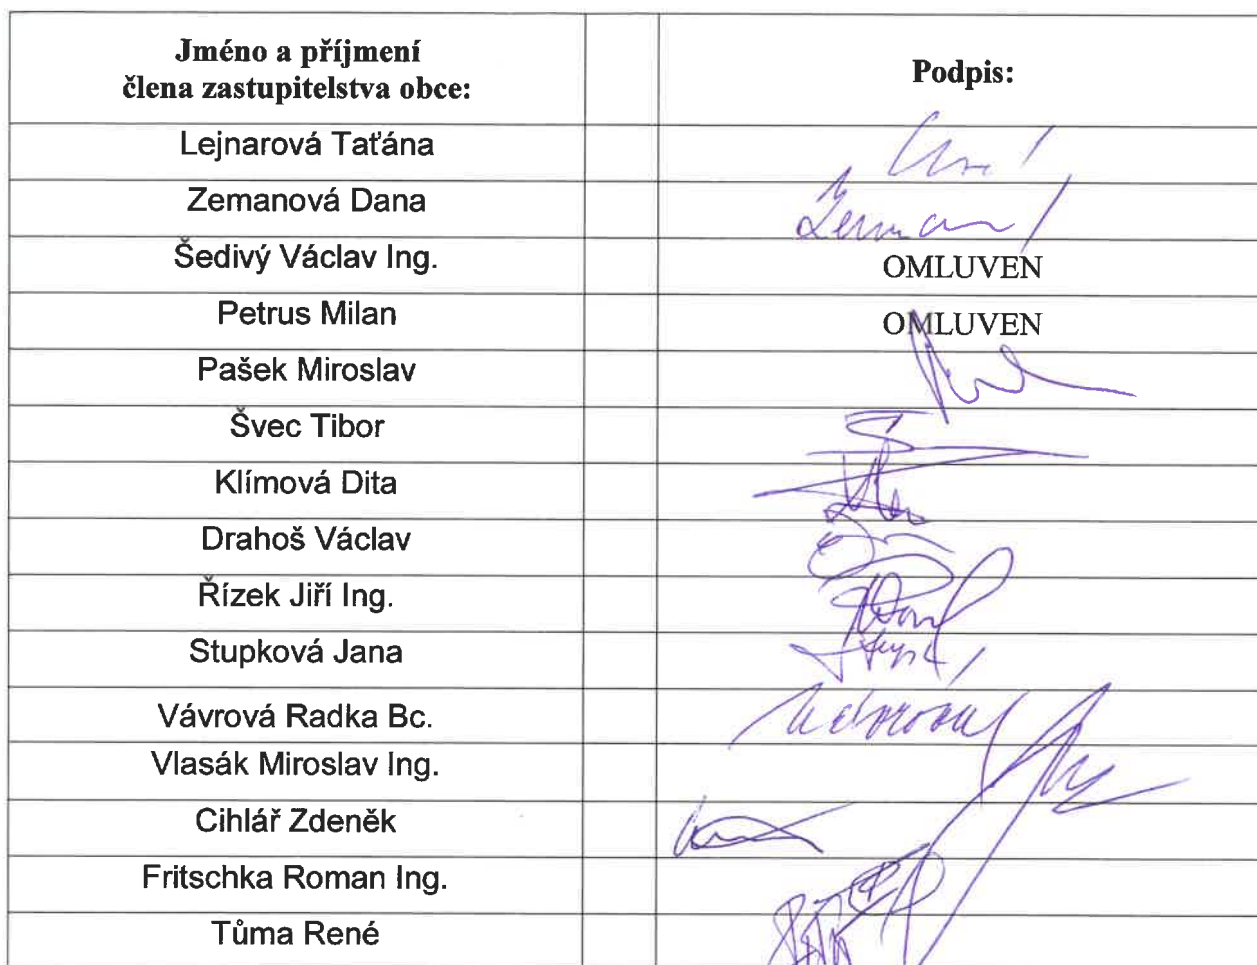 Jméno a příjmení
člena zastupitelstva obce:
Podpis:
Lejnarová Taťána
Zemanová Dana
Zeman
Šedivý Václav Ing.
OMLUVEN
Petrus Milan
OMLUVEN
Pašek Miroslav
Švec Tibor
Klímová Dita
Drahoš Václav
Řízek Jiří Ing.
Stupková Jana
Vávrová Radka Bc.
Vlasák Miroslav Ing.
Cihlář Zdeněk
Fritschka Roman Ing.
Tůma René